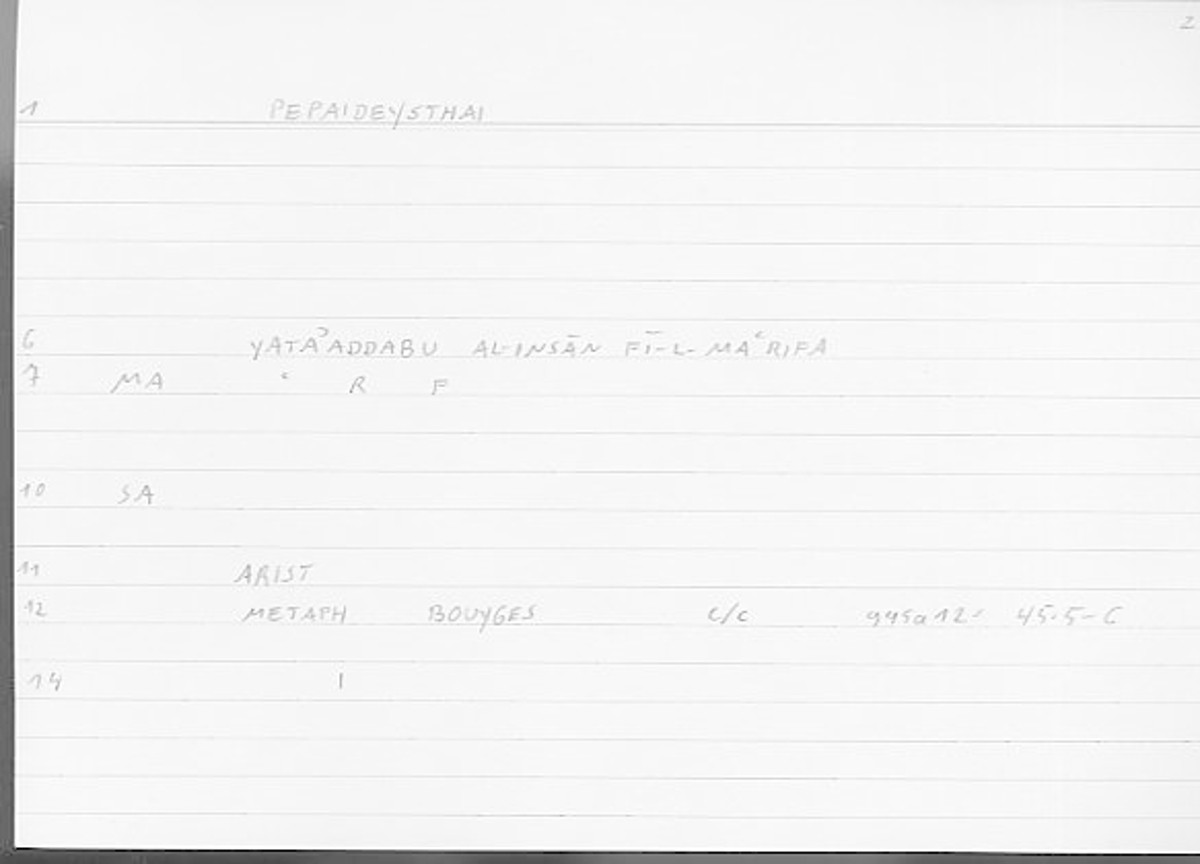 2
1 PEPAIDEYSTHAI
6 YATAʾADDABU AL-INSĀN FĪ-L-MAʿRIFA
7 MA ʿ R F
10 SA
11 ARIST
12 METAPH BOUYGES c/c 995a12- 45.5-6
14 1